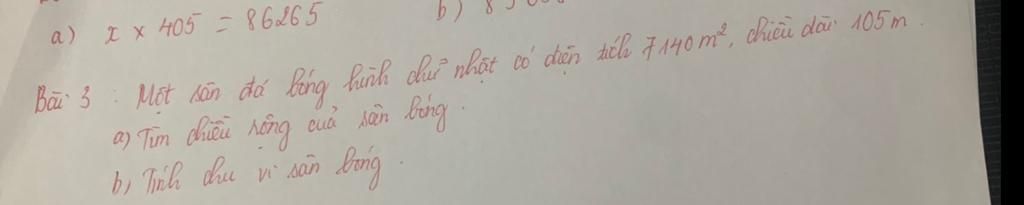 a) x × 405 = 86265 b)
Bài 3 : Một sân đá bóng hình chữ nhật có diện tích 7140 m², chiều dài 105 m.
a) Tìm chiều rộng của sân bóng.
b) Tính chu vi sân bóng.